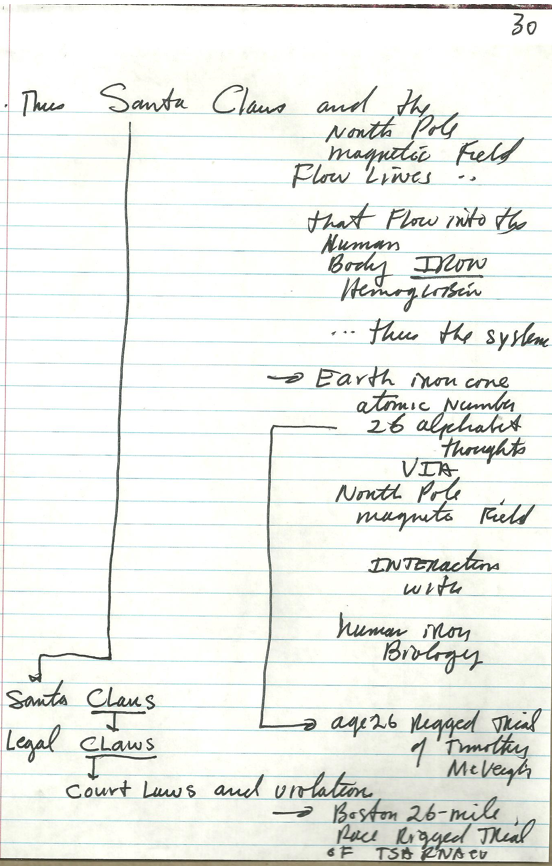 30
. Thus Santa Claus and the
North Pole
magnetic Field
Flow Lines ..
that Flow into the
Human
Body IRON
Hemoglobin
... thus the system
→ Earth iron core
atomic number
26 alphabet
thoughts
VIA
North Pole
magnetic Field
INTERaction
with
human iron
Biology
Santa Claus
Legal CLAWS
Court Laws and violation
→ age 26 Rigged Trial
of Timothy
McVeigh
→ Boston 26-mile
Race Rigged Trial
OF TSARNAEV